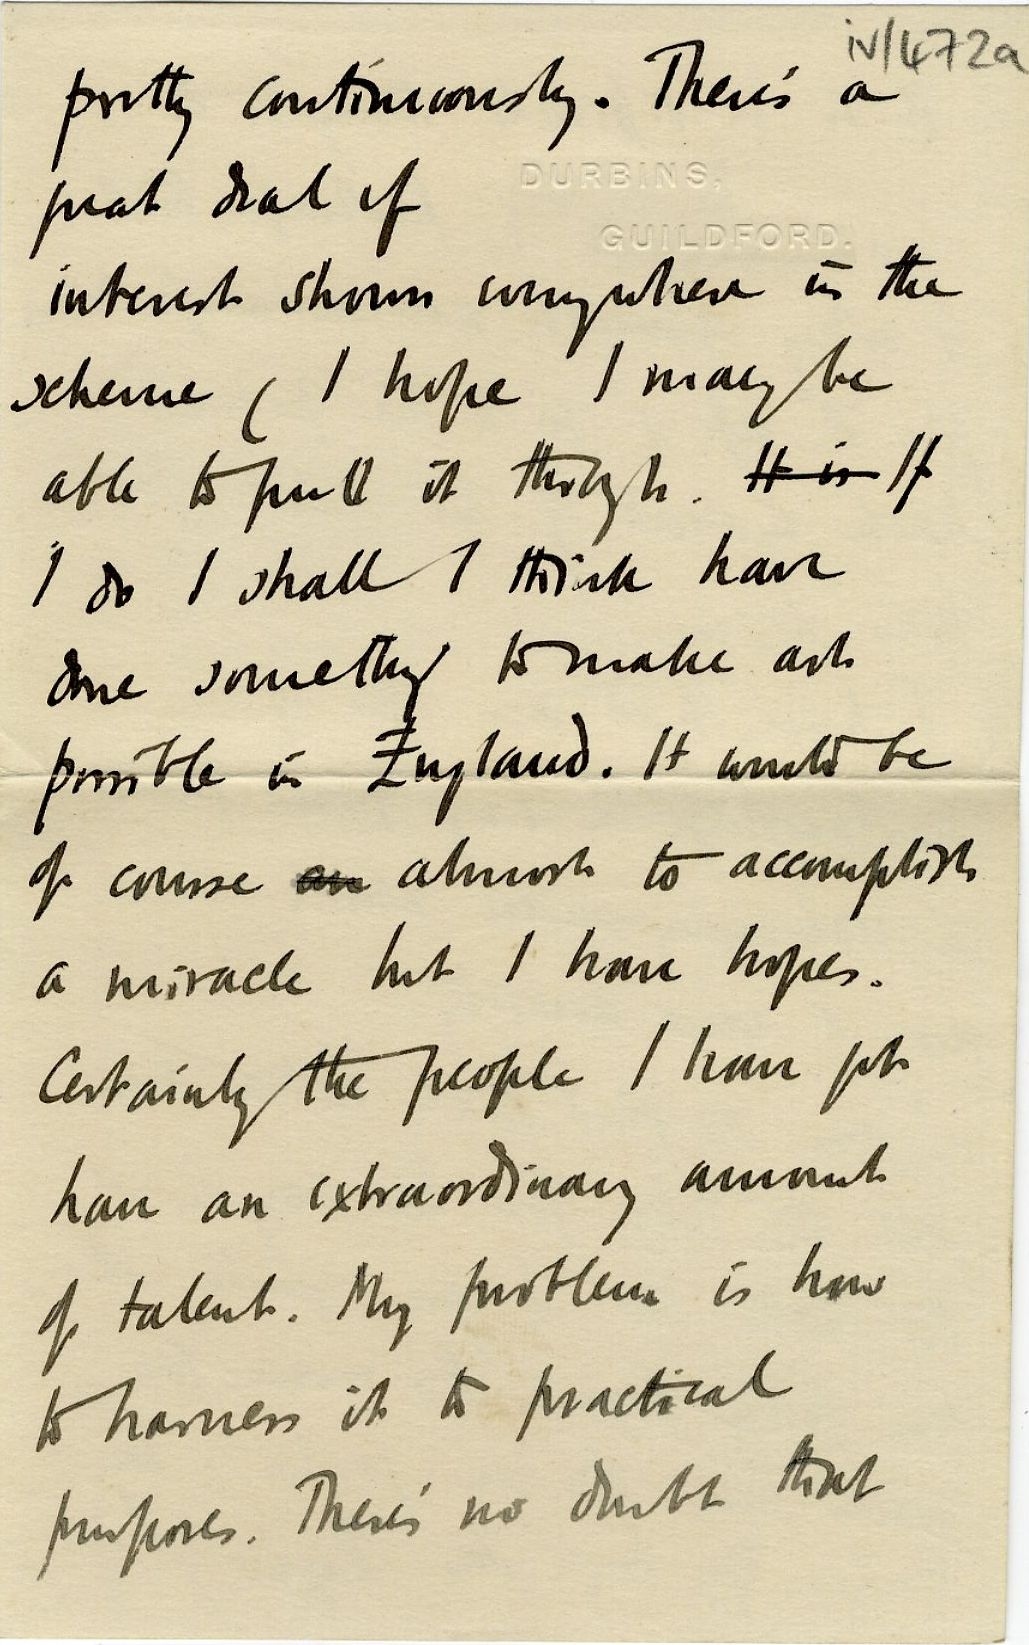 iv/472a
pretty continuously. There's a
DURBINS,
great deal of
GUILDFORD.
interest shown everywhere in the
scheme & I hope I may be
able to pull it through. It is If
I do I shall I think have
done something to make art
possible in England. It would be
of course an almost to accomplish
a miracle but I have hopes.
Certainly the people I have got
have an extraordinary amount
of talent. My problem is how
to harness it to practical
purposes. There's no doubt that